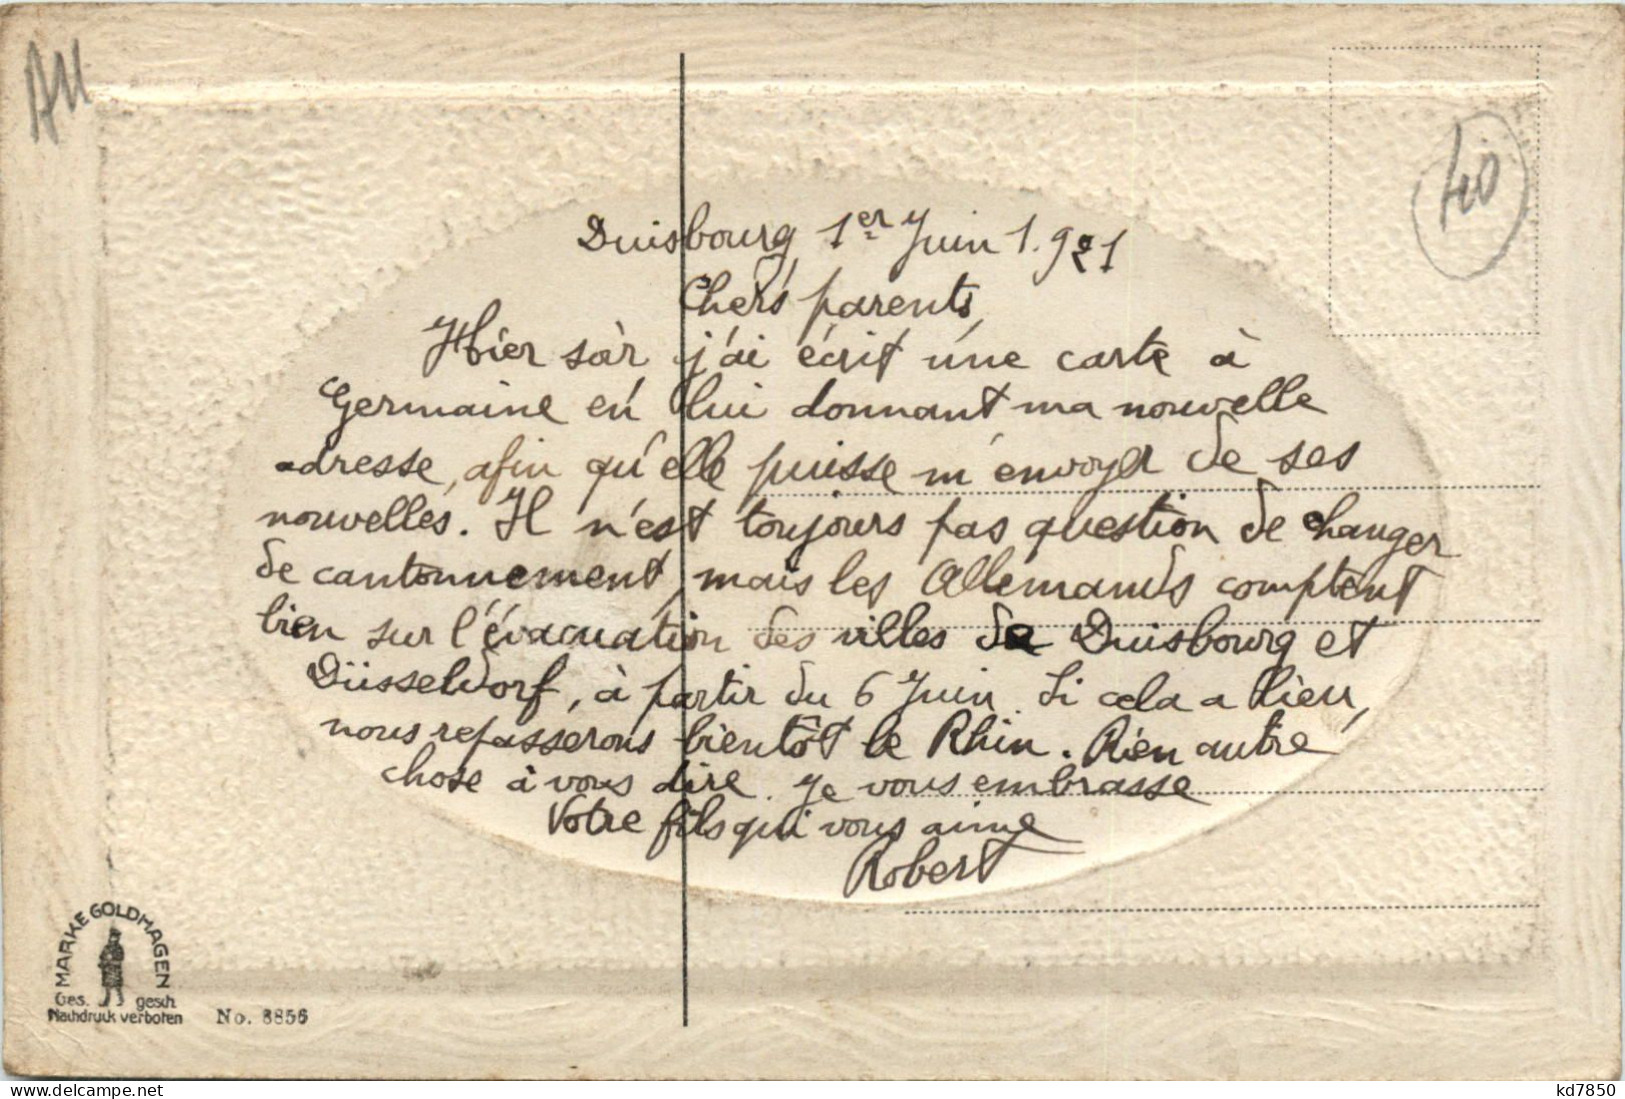 AU
40
Duisbourg, 1er Juin 1.921
Chers parents,
Hier soir j'ai écrit une carte à
Germaine en lui donnant ma nouvelle
adresse, afin qu'elle puisse m'envoyer de ses
nouvelles. Il n'est toujours pas question de changer
de cantonnement, mais les Allemands comptent
bien sur l'évacuation des villes de Duisbourg et
Düsseldorf, à partir du 6 Juin. Si cela a lieu,
nous repasserons bientôt le Rhin. Rien autre
chose à vous dire. Je vous embrasse
Votre fils qui vous aime
Robert
MARKE GOLDHAGEN
Ges. gesch.
Nachdruck verboten No. 8856
delcampe.net kd7850